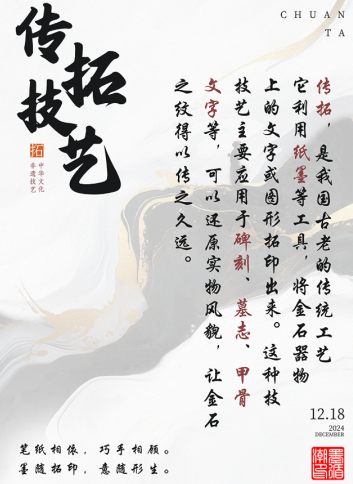 传拓技艺
CHUAN
TA
拓
中华文化
非遗技艺
传拓，是我国古老的传统工艺
它利用纸墨等工具，将金石器物
上的文字或图形拓印出来。这种技
技艺主要应用于碑刻、墓志、甲骨
文字等，可以还原实物风貌，让金石
之纹得以传之久远。
12.18
2024
DECEMBER
笔纸相依，巧手相顾。
墨随拓印，意随形生。